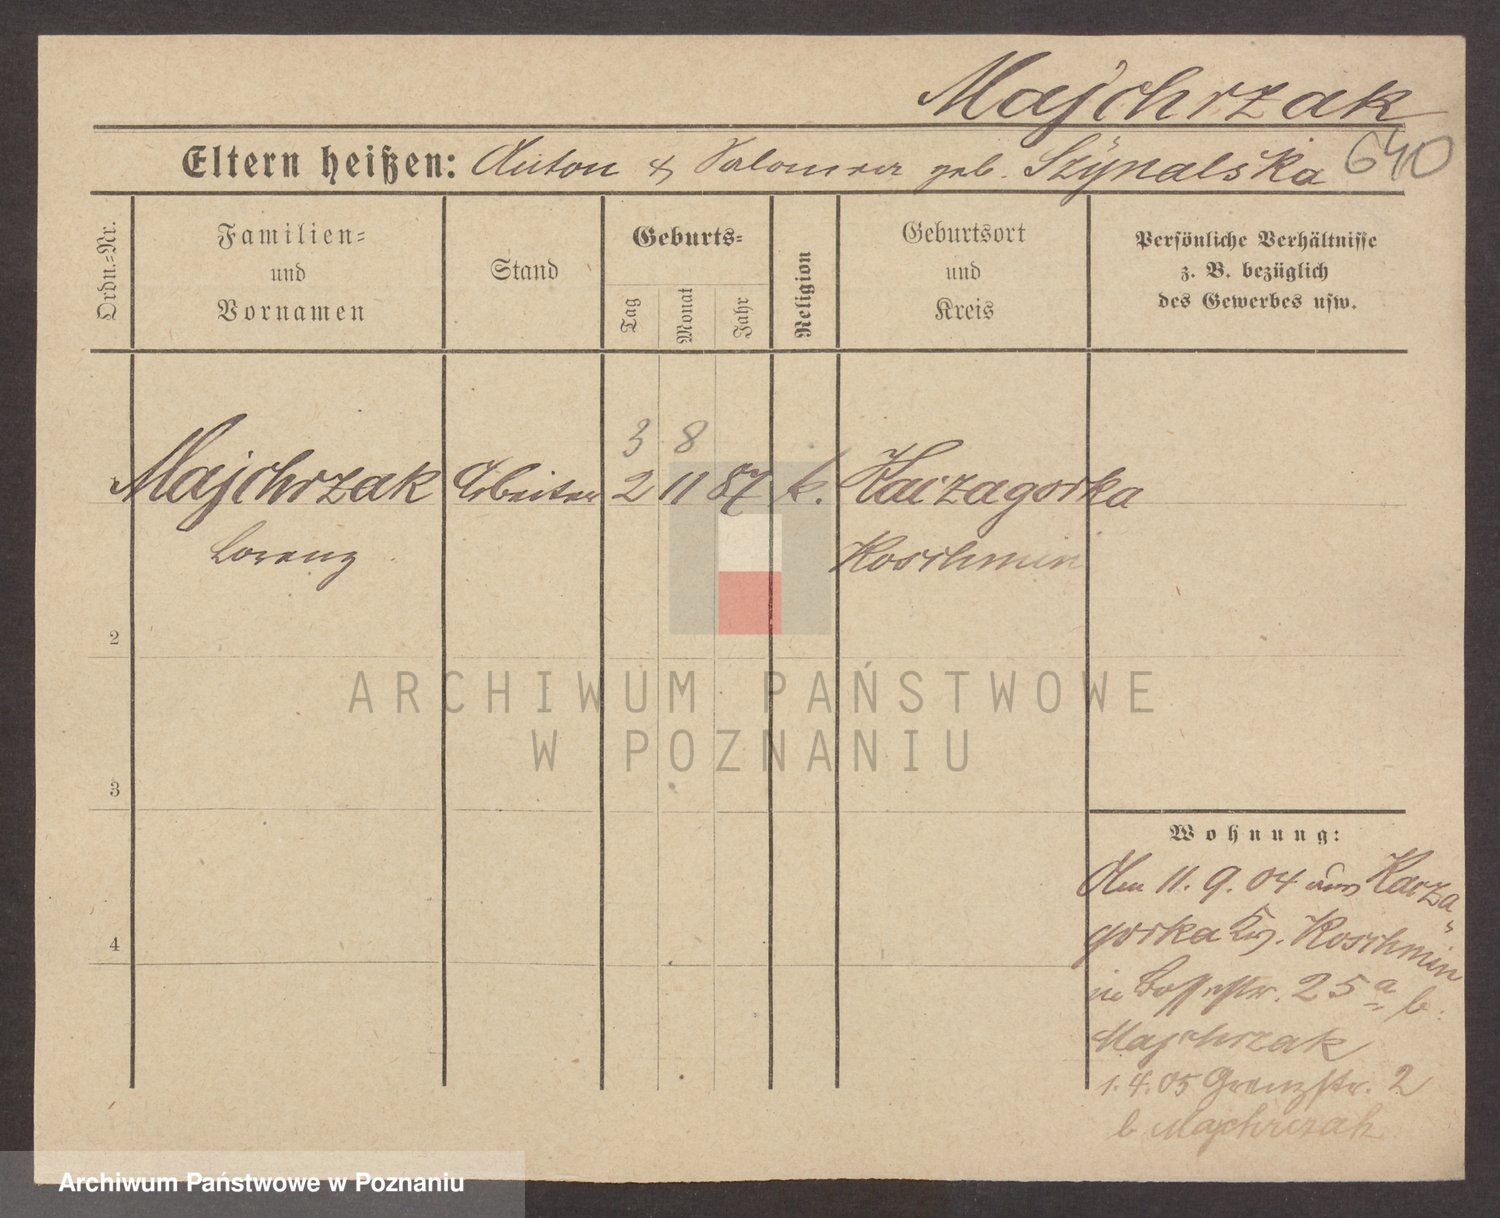 Majchrzak
Eltern heißen: Anton & Salomea geb. Szÿnalska 640
Ordn.-Nr.
Familien-
und
Vornamen
Stand
Geburts-
Tag
Monat
Jahr
Religion
Geburtsort
und
Kreis
Persönliche Verhältnisse
z. B. bezüglich
des Gewerbes usw.
3 8
Majchrzak Arbeiter 2 11 87 k. Karzagorka
Lorenz Koschmin
2
3
4
Wohnung:
Am 11. 9. 04 aus Karza
gorka Koschmin
in 25a b.
Majchrzak
1. 4. 05 Grenzstr. 2
b Majchrzak
ARCHIWUM PAŃSTWOWE
W POZNANIU
Archiwum Państwowe w Poznaniu